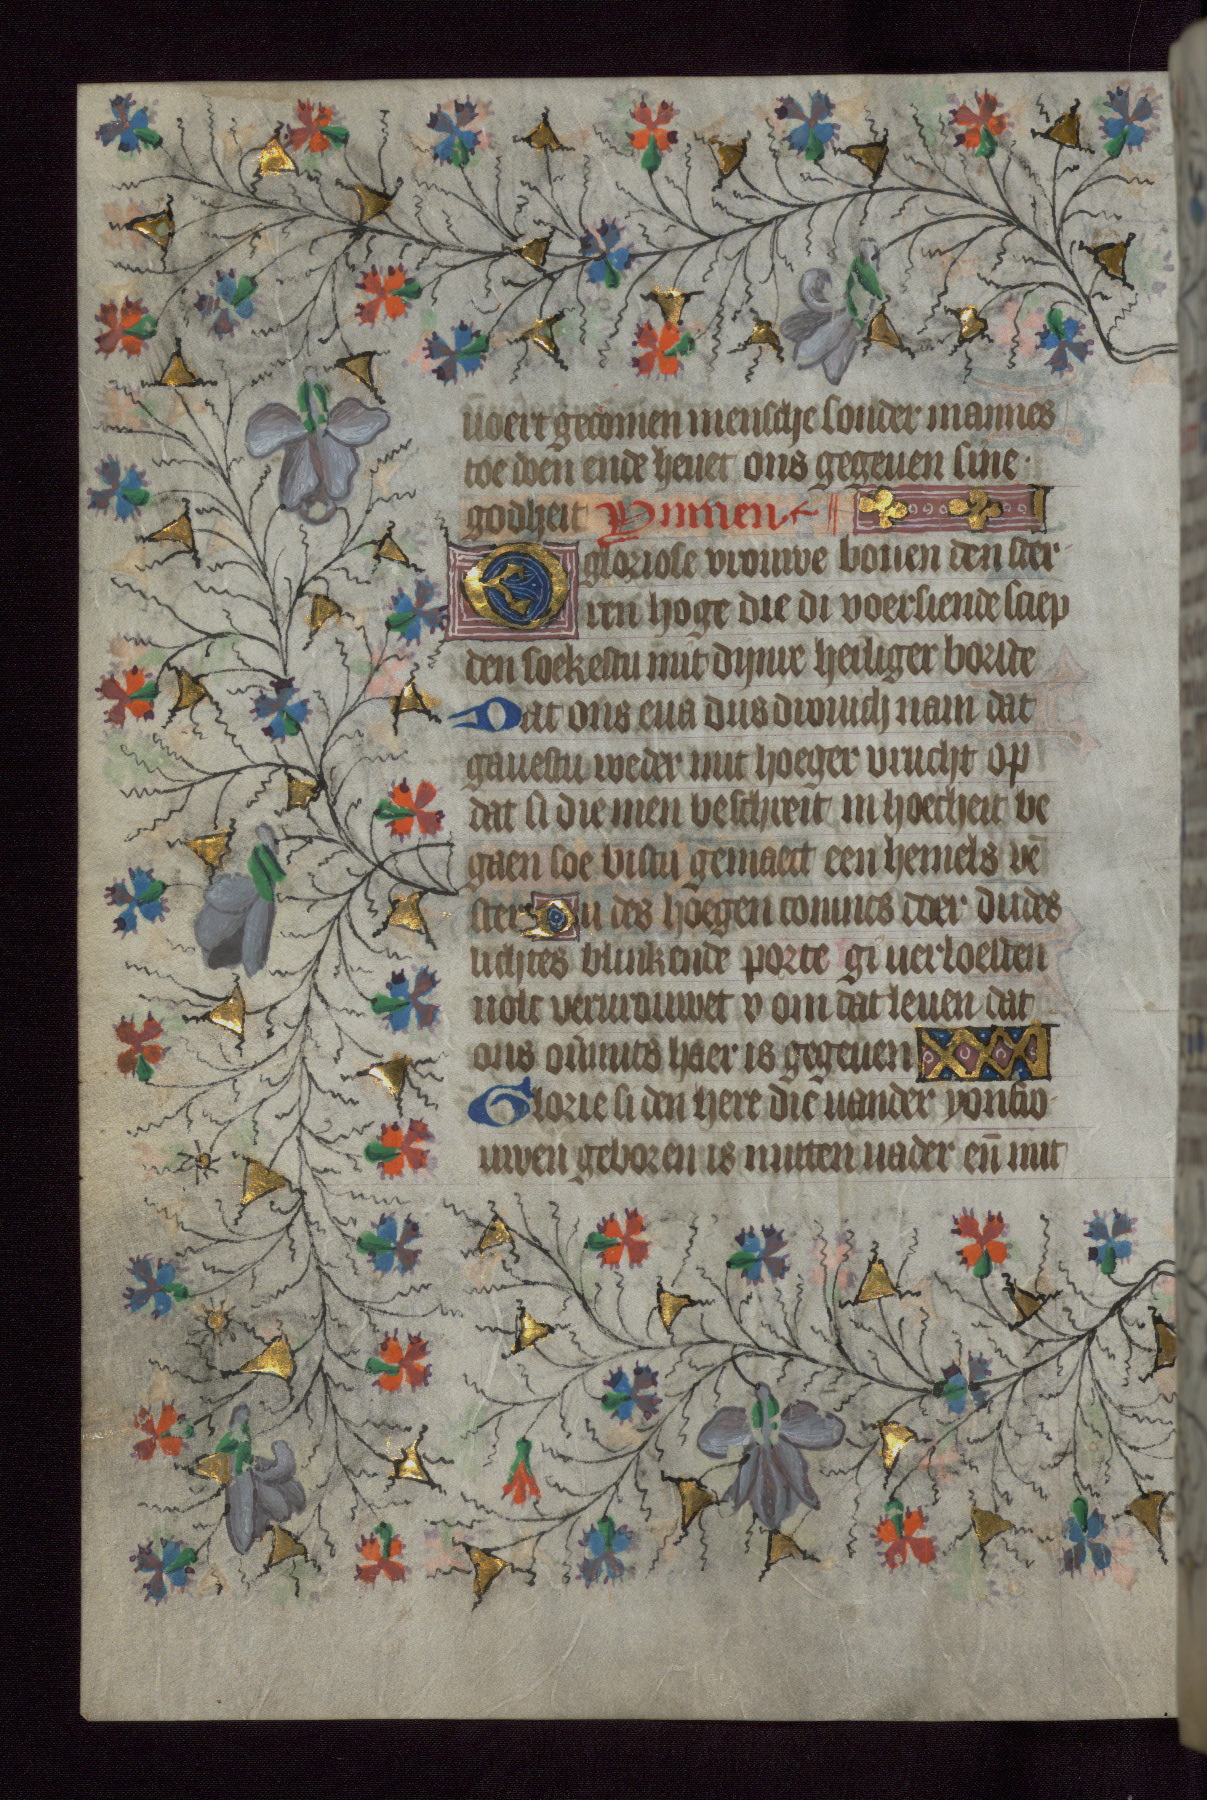 uoert gecomen mensche sonder mannes
toe doen ende heuet ons gegeuen sine·
godheit Ymnen
O gloriose vrouwe bouen den ster
ren hoge die di voersiende sciep
den soekestu mit dijnre heiliger borste
Dat ons eua dus drouich nam dat
gauestu weder mit hoeger vrucht op
dat si die men beschreit in hoecheit be
gaen soe bistu gemaect een hemels vē
ster Du des hoegen conincs doer du des
lichtes blinkende porte gi verloesten
uolc verurouwet v om dat leuen dat
ons ouermits haer is gegeuen
Glorie si den here die uander yoncfro
uwen geboren is mitten uader eñ mit